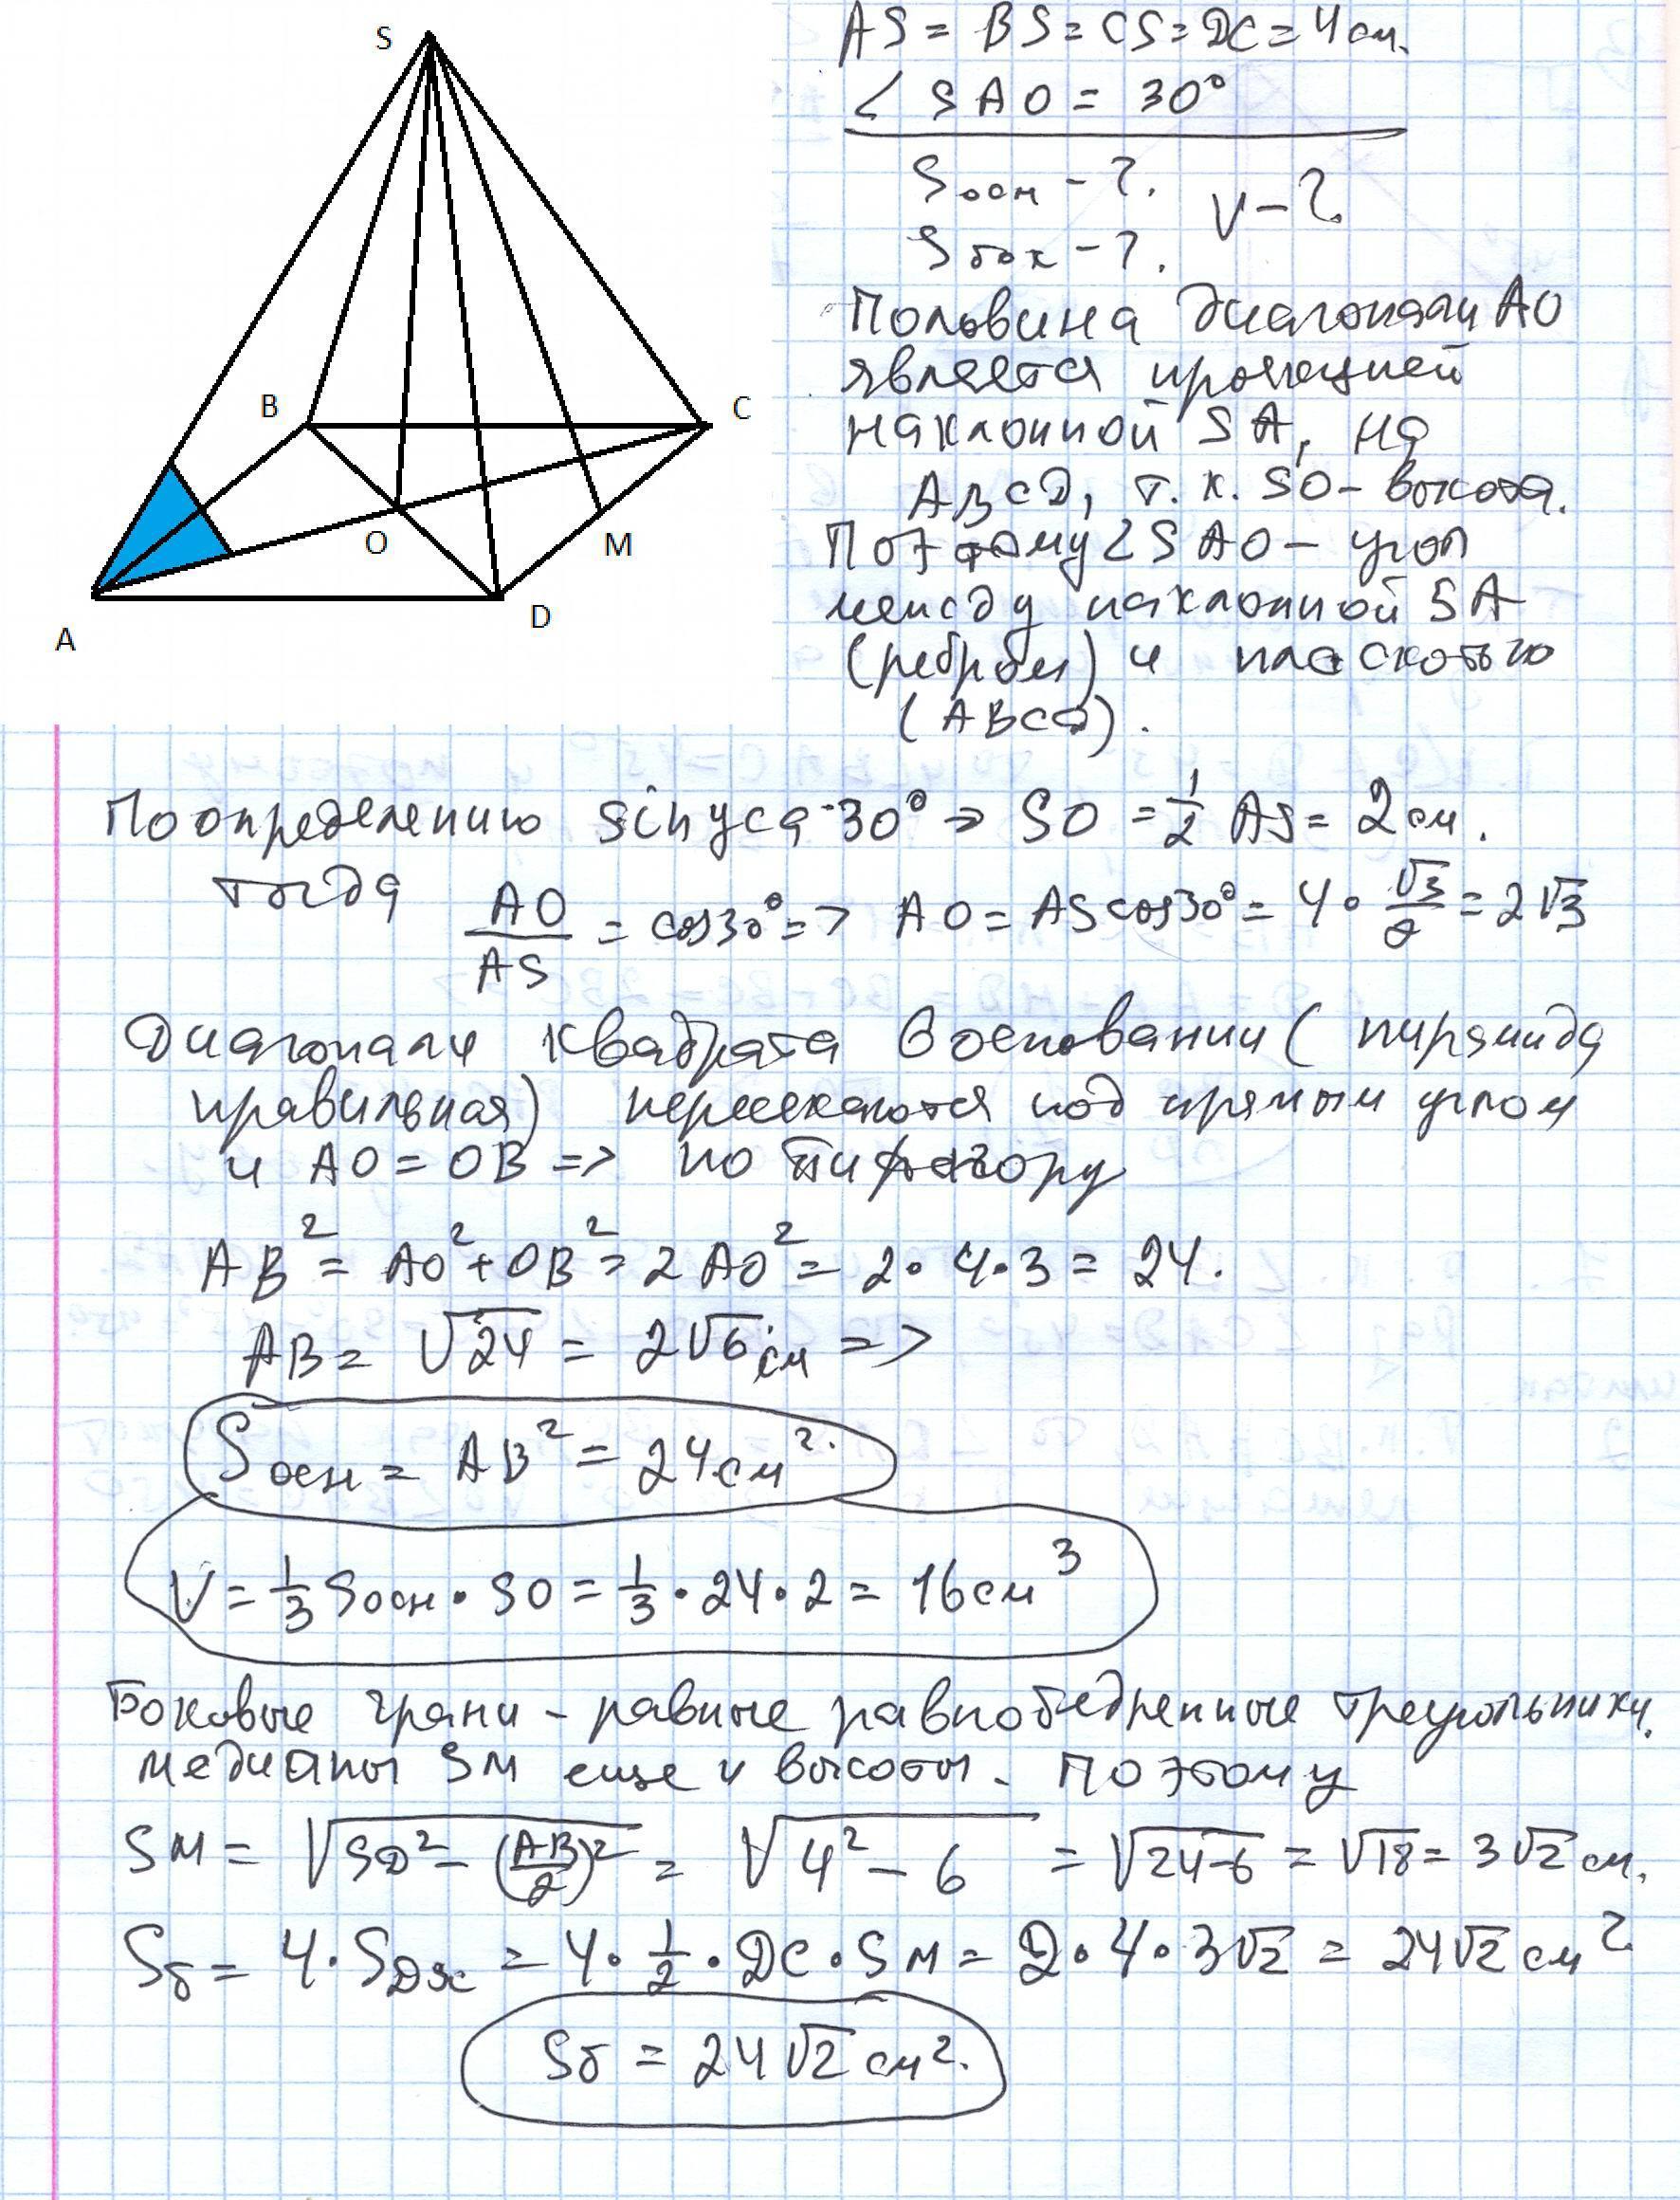 S
B
C
O
M
D
A
AS = BS = CS = DC = 4 см.
∠ SAO = 30°
Sосн - ?. V - ?
Sбок - ?.
Половина диагонали AO
является проекцией
наклонной SA, на
ABCD, т.к. SO - высота.
Поэтому ∠SAO - угол
между наклонной SA
(ребром) и плоскостью
(ABCD).
По определению sinуса 30° => SO = 1/2 AS = 2 см.
тогда AO/AS = cos30° => AO = AS cos30° = 4 · √3/2 = 2√3
Диагонали квадрата в основании (пирамида
правильная) пересекаются под прямым углом
и AO = OB => по Пифагору
AB² = AO² + OB² = 2AO² = 2·4·3 = 24.
AB = √24 = 2√6 см =>
Sосн = AB² = 24 см².
V = 1/3 Sосн · SO = 1/3 · 24 · 2 = 16 см³
Боковые грани - равные равнобедренные треугольники.
медианы SM еще и высоты. Поэтому
SM = √(SD² - (AB/2)²) = √(4² - 6) = √(24-6) = √18 = 3√2 см.
Sб = 4 · SDSC = 4 · 1/2 · DC · SM = 2 · 4 · 3√2 = 24√2 см²
Sб = 24√2 см².